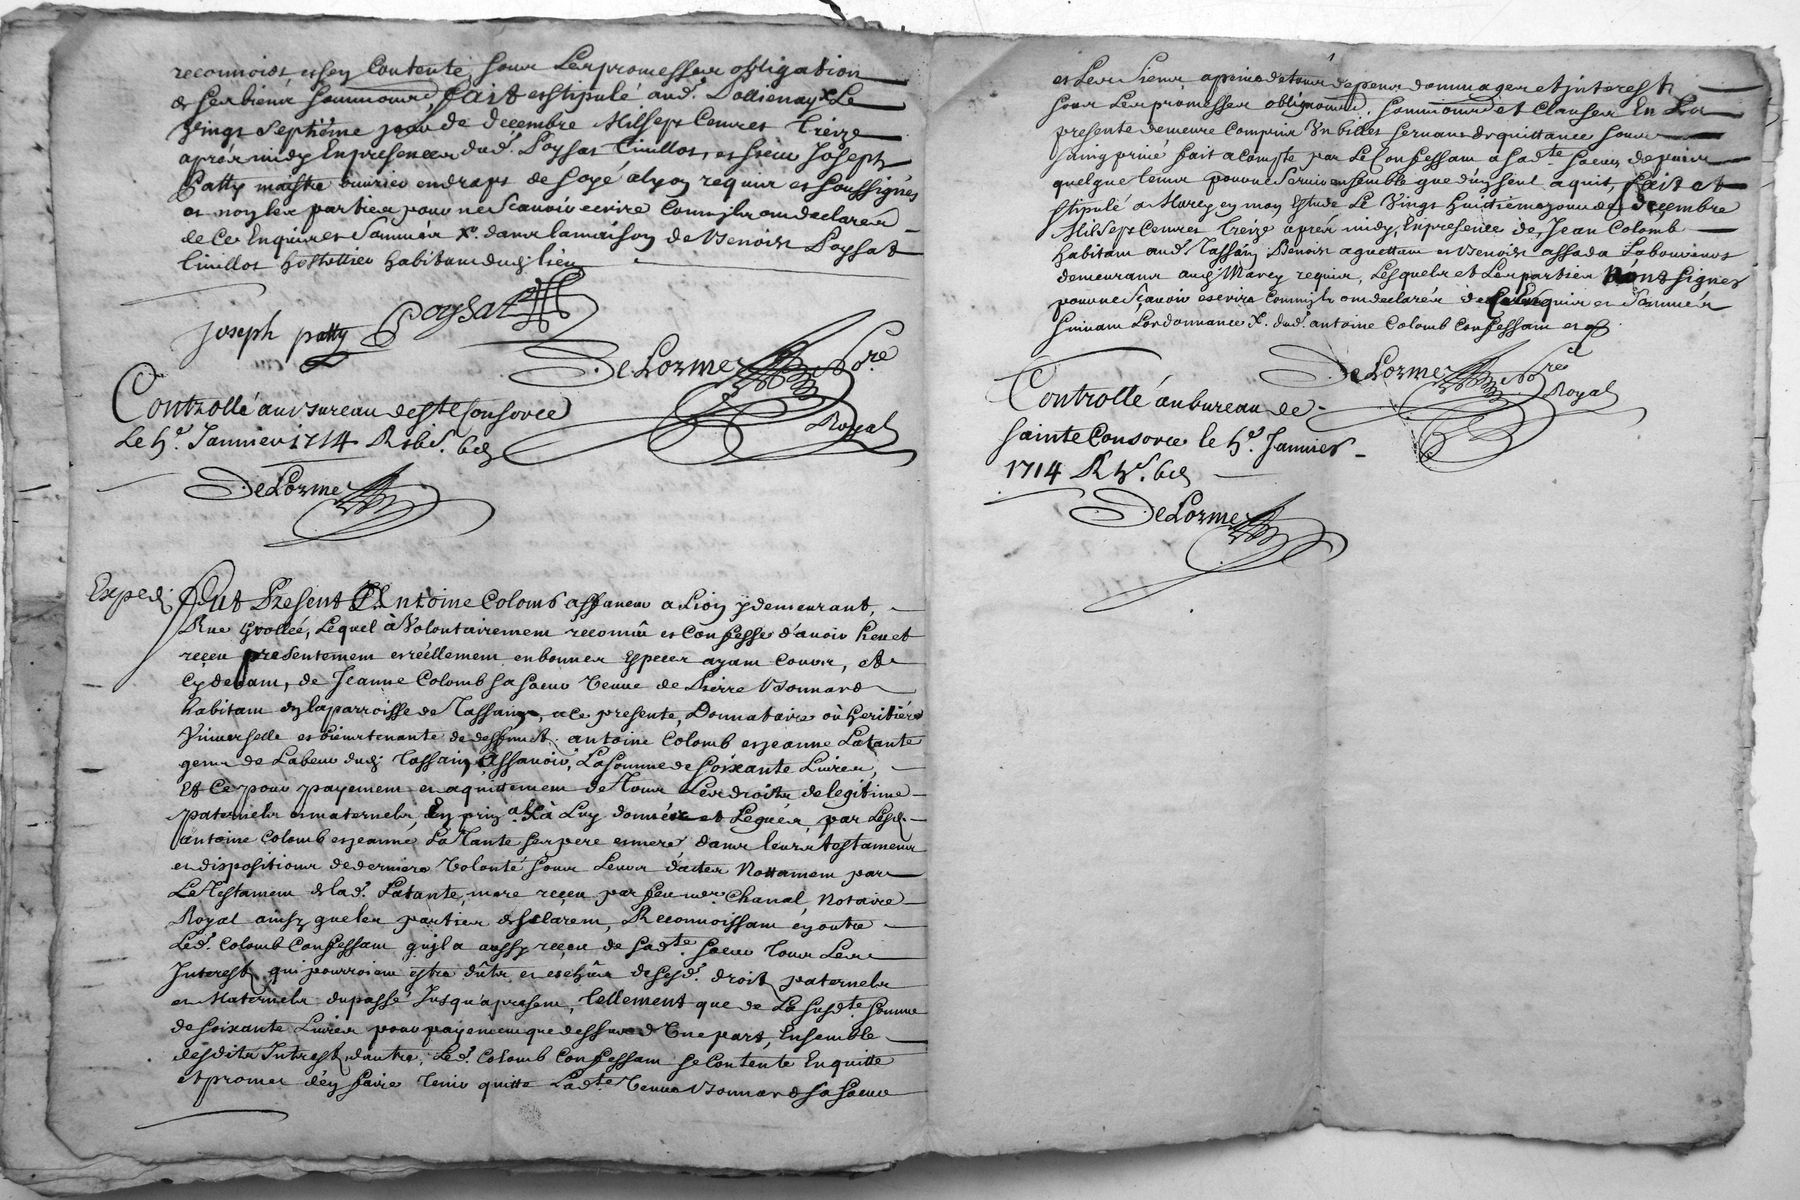 reconnoist, et s'en contente, sous les promesses obligation
de ses biens soummons, fait et stipulé aud. Pollienay Le
vingt septiéme jour de decembre Mil sept Cent Treize
aprés midy En presence dud. Poysat Tiuillot, et sieur Joseph
Patty maistre ouurier en draps de soye a lyon requis et soussignés
et non les parties pour ne sçauoir ecrire comm'ils ont declarés
de ce Enquis et sommés X. dans la maison de Benoist Poysat
Tiuillot hostellier habitant dud. lieu
Poysat
joseph patty
DeLorme No.re
Royal
Controllé au bureau de ste Consorce
Le 5e. Januier 1714 R
DeLorme
Exped.
Fut Present Sr. Antoine Colomb affaneur a Lion y demeurant,
Rue Grollée, Lequel a Volontairement reconnu et Confessé d'auoir heu et
reçeu presentement et réellement en bonnes Especes ayant Cours, et
Cy deuant, de Jeanne Colomb sa soeur Veuue de Pierre Bonnard
habitant en la parroisse de Tassain, a ce presente, Donnataire où heritiére
Vniuerselle et bientenante de deffunct. antoine Colomb et jeanne Latante
gens de Labeur dud. Tassain, Assauoir, La somme de soixante Liures,
Et Ce pour payement et aquittement de Tous Les droits de legitime
paternels et maternels, En prin.al à Luy donnés et Legués, par Lesd.
antoine Colomb et jeanne La Tante ses pere et mere dans leurs testamens
et dispositions de derniere Volonté sous Leurs dates Nottament par
Le Testament de lad. Latante, mere reçeu par feu me. Chanal, Notaire
Royal ainsy que les parties declarent, Reconnoissant en outre
Led. Colomb Confessant qu'jl a aussy reçeu de sad.te soeur Tous Les
Interest qui pourroient estre dûts et escheus desd. droit paternels
et Maternels du passé Jusqu'a present, Tellement que de La susd.te somme
de soixante Liures pour payement que dessus d'Vne part, Ensemble
desdits Interest, d'autre, Led. Colomb Confessant se Contente En quitte
et promet d'en faire tenir quitte Lad.te Veuue Bonnard sa soeur
et Les siens a peine de tous depens dommages et jnterest
sous Les promesses obligaons. soummons et Clauses En La
presente demeure Compris Vn billet seruant de quittance sous
saing priué fait a Compte par Le Confessant a sad.te soeur depuis
quelque tems pour ne seruir ensemble que d'un seul aquit, fait et
stipulé a Marcy en mon Estude Le Vingt huitiéme jour de decembre
Mil Sept Cent Treize aprés midy, En presence de, Jean Colomb
habitant aud. Tassain Benoist aguettant et Benoist assada Laboureurs
demeurans aud. Marcy requis, Lesquels et Les parties N'ont signés
pour ne sçauoir escrire Comm'ils ont declarés de ce Enquis et sommés
suiuant L'ordonnance X. dud. antoine Colomb Confessant
DeLorme No.re
Royal
Controllé au bureau de
sainte Consorce le 5e. Januier
1714 R
DeLorme